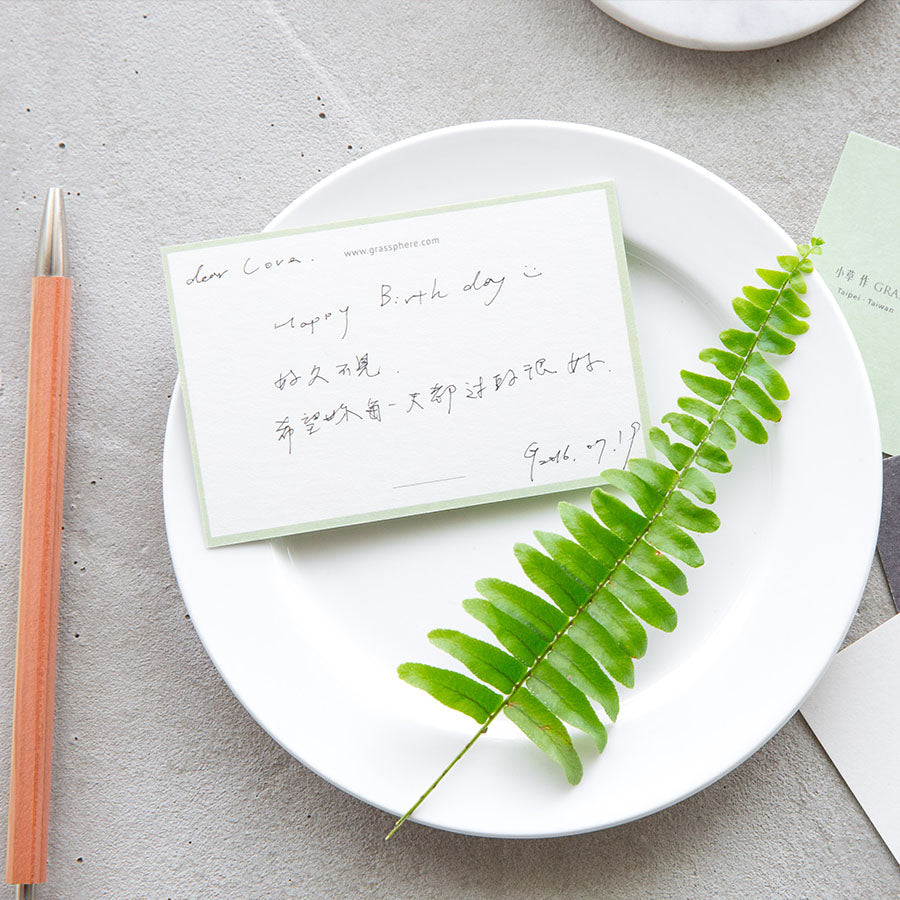 www.grassphere.com
dear Cora.
Happy Birthday :)
好久不見.
希望妳每一天都过的很好.
2016.07.19
小草作 GRA
Taipei · Taiwan